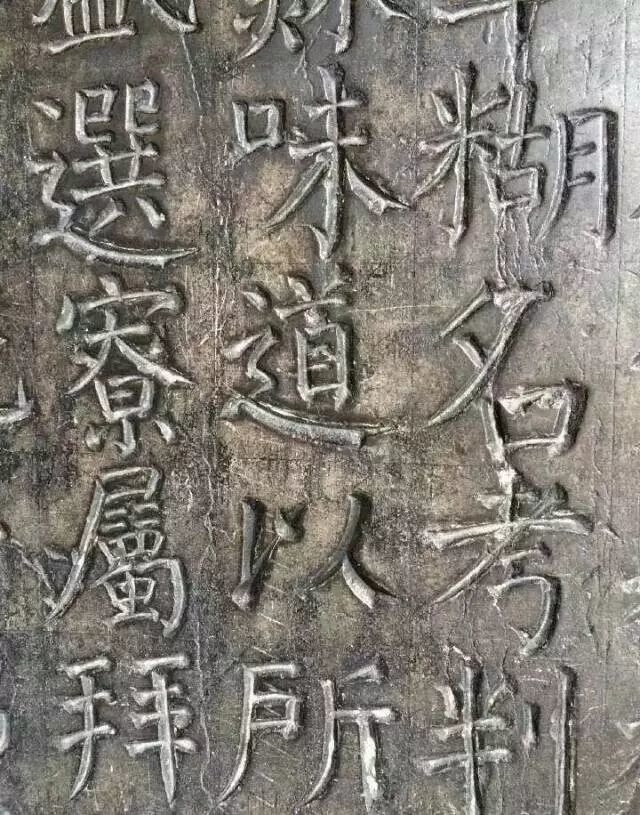 糊名考判
味道以所
盛選寮屬拜